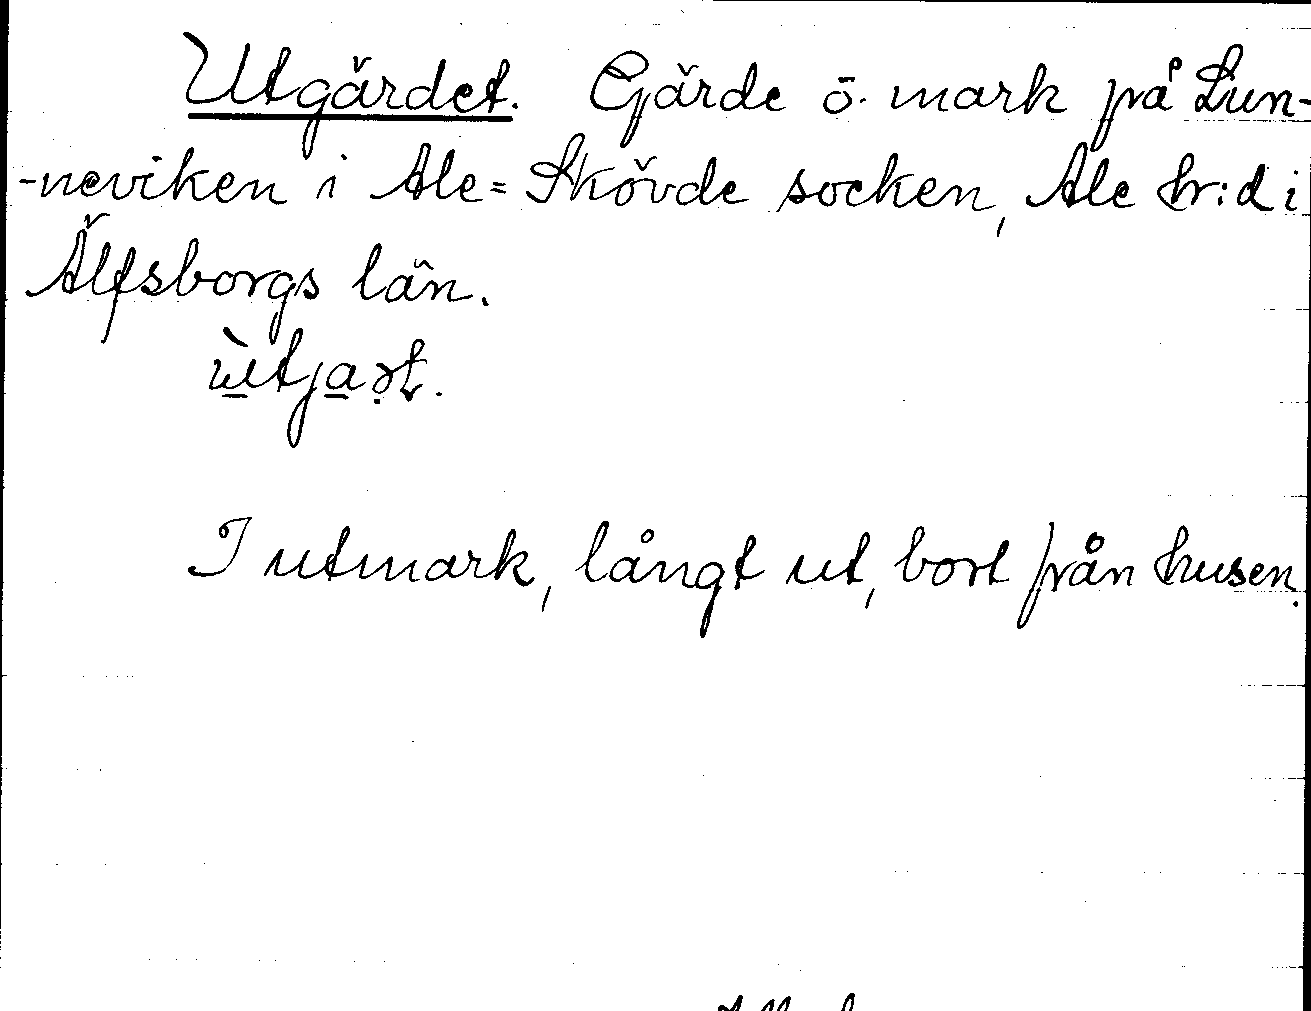 Utgärdet. Gärde ö. mark på Lun-
-neviken i Ale=Skövde socken, Ale hr:d i
Älfsborgs län.
ùtjaṛt.
I utmark, långt ut, bort från husen.